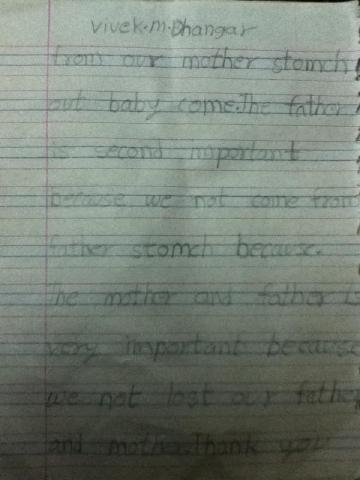 vivek.m.Dhangar
from our mother stomch
out baby come.The father
is second important
because we not come from
father stomch because.
The mother and father
very important because
we not lost our father
and mother.Thank you